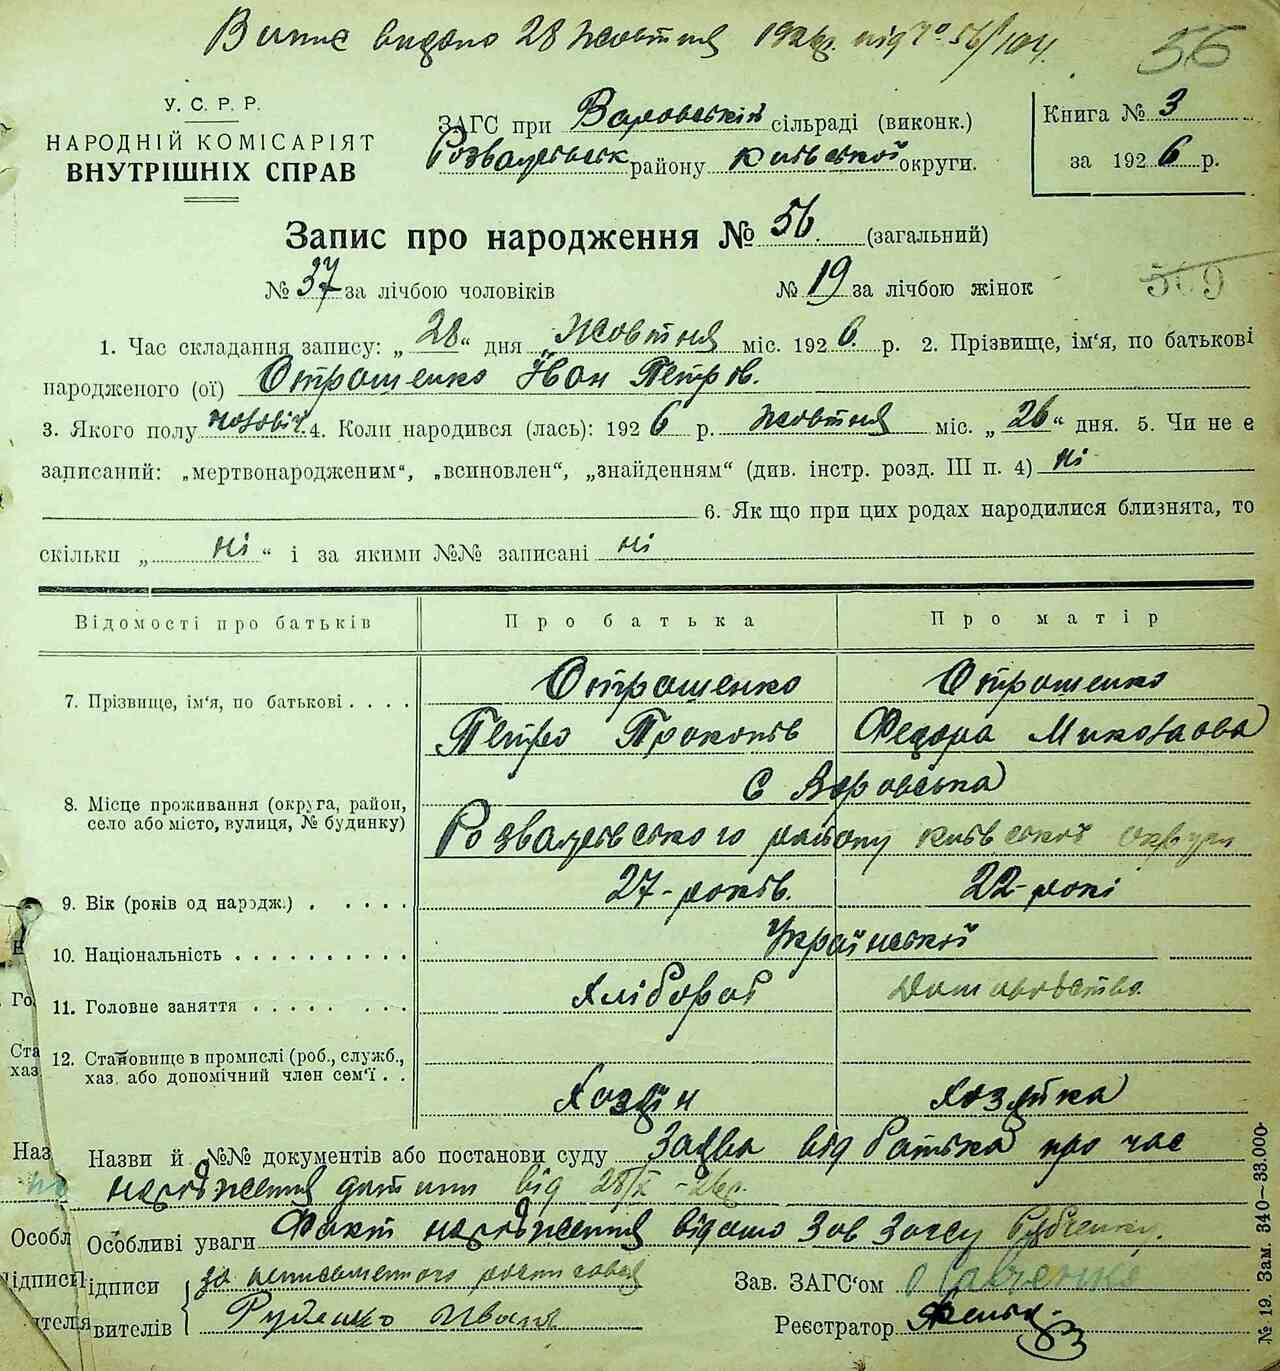 Випис видано 28 Жовтня 1926р. під № 56/104.
56
У. С. Р. Р.
НАРОДНІЙ КОМІСАРІЯТ
ВНУТРІШНІХ СПРАВ
ЗАГС при Варовській сільраді (виконк.)
Розважевськ району Київської округи.
Книга № 3
за 1926 р.
Запис про народження № 56. (загальний)
№ 37 за лічбою чоловіків № 19 за лічбою жінок
509
1. Час складання запису: „ 28 “ дня „ Жовтня міс. 1926. р. 2. Прізвище, ім‘я, по батькові
народженого (ої) Отрошенко Іван Петров.
3. Якого полу чоловіч. 4. Коли народився (лась): 1926 р. Жовтня міс. „ 26 “ дня. 5. Чи не є
записаний: „мертвонародженим“, „всиновлен“, „знайденням“ (див. інстр. розд. III п. 4) ні
6. Як що при цих родах народилися близнята, то
скільки „ ні “ і за якими №№ записані ні
Відомості про батьків Про батька Про матір
7. Прізвище, ім‘я, по батькові . . . .
Отрошенко Отрошенко
Петро Прокопів Федора Миколаова
С Варовська
8. Місце проживання (округа, район,
село або місто, вулиця, № будинку)
Розважевського району Київської округи
9. Вік (років од народж.) . . . . . 27-років. 22-рокі
10. Національність . . . . . . . . . . Української
11. Головне заняття . . . . . . . . Хлібороб Домоводство
12. Становище в промислі (роб., служб.,
хаз. або допомічний член сем‘ї . .
Хозяін Хозяйка
Назви й №№ документів або постанови суду Заява від батька про час
народження дитини від 28/X-26р.
Особливі уваги Факт народження відомо Зав Загсу
ідписи за неписьменного розписався
вителів Руденко Иван
Зав. ЗАГС‘ом
Реєстратор
Наз
Особл
Ста
хаз
№ 19. Зам. 340—33.000.